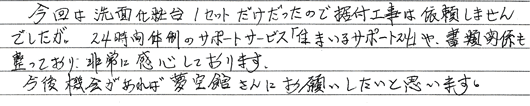 今回は洗面化粧台1セットだけだったので据付工事は依頼しません
でしたが、24時間体制のサポートサービス「住まいるサポート24」や、書類関係も
整っており、非常に感心しております。
今後機会があれば夢空館さんにお願いしたいと思います。